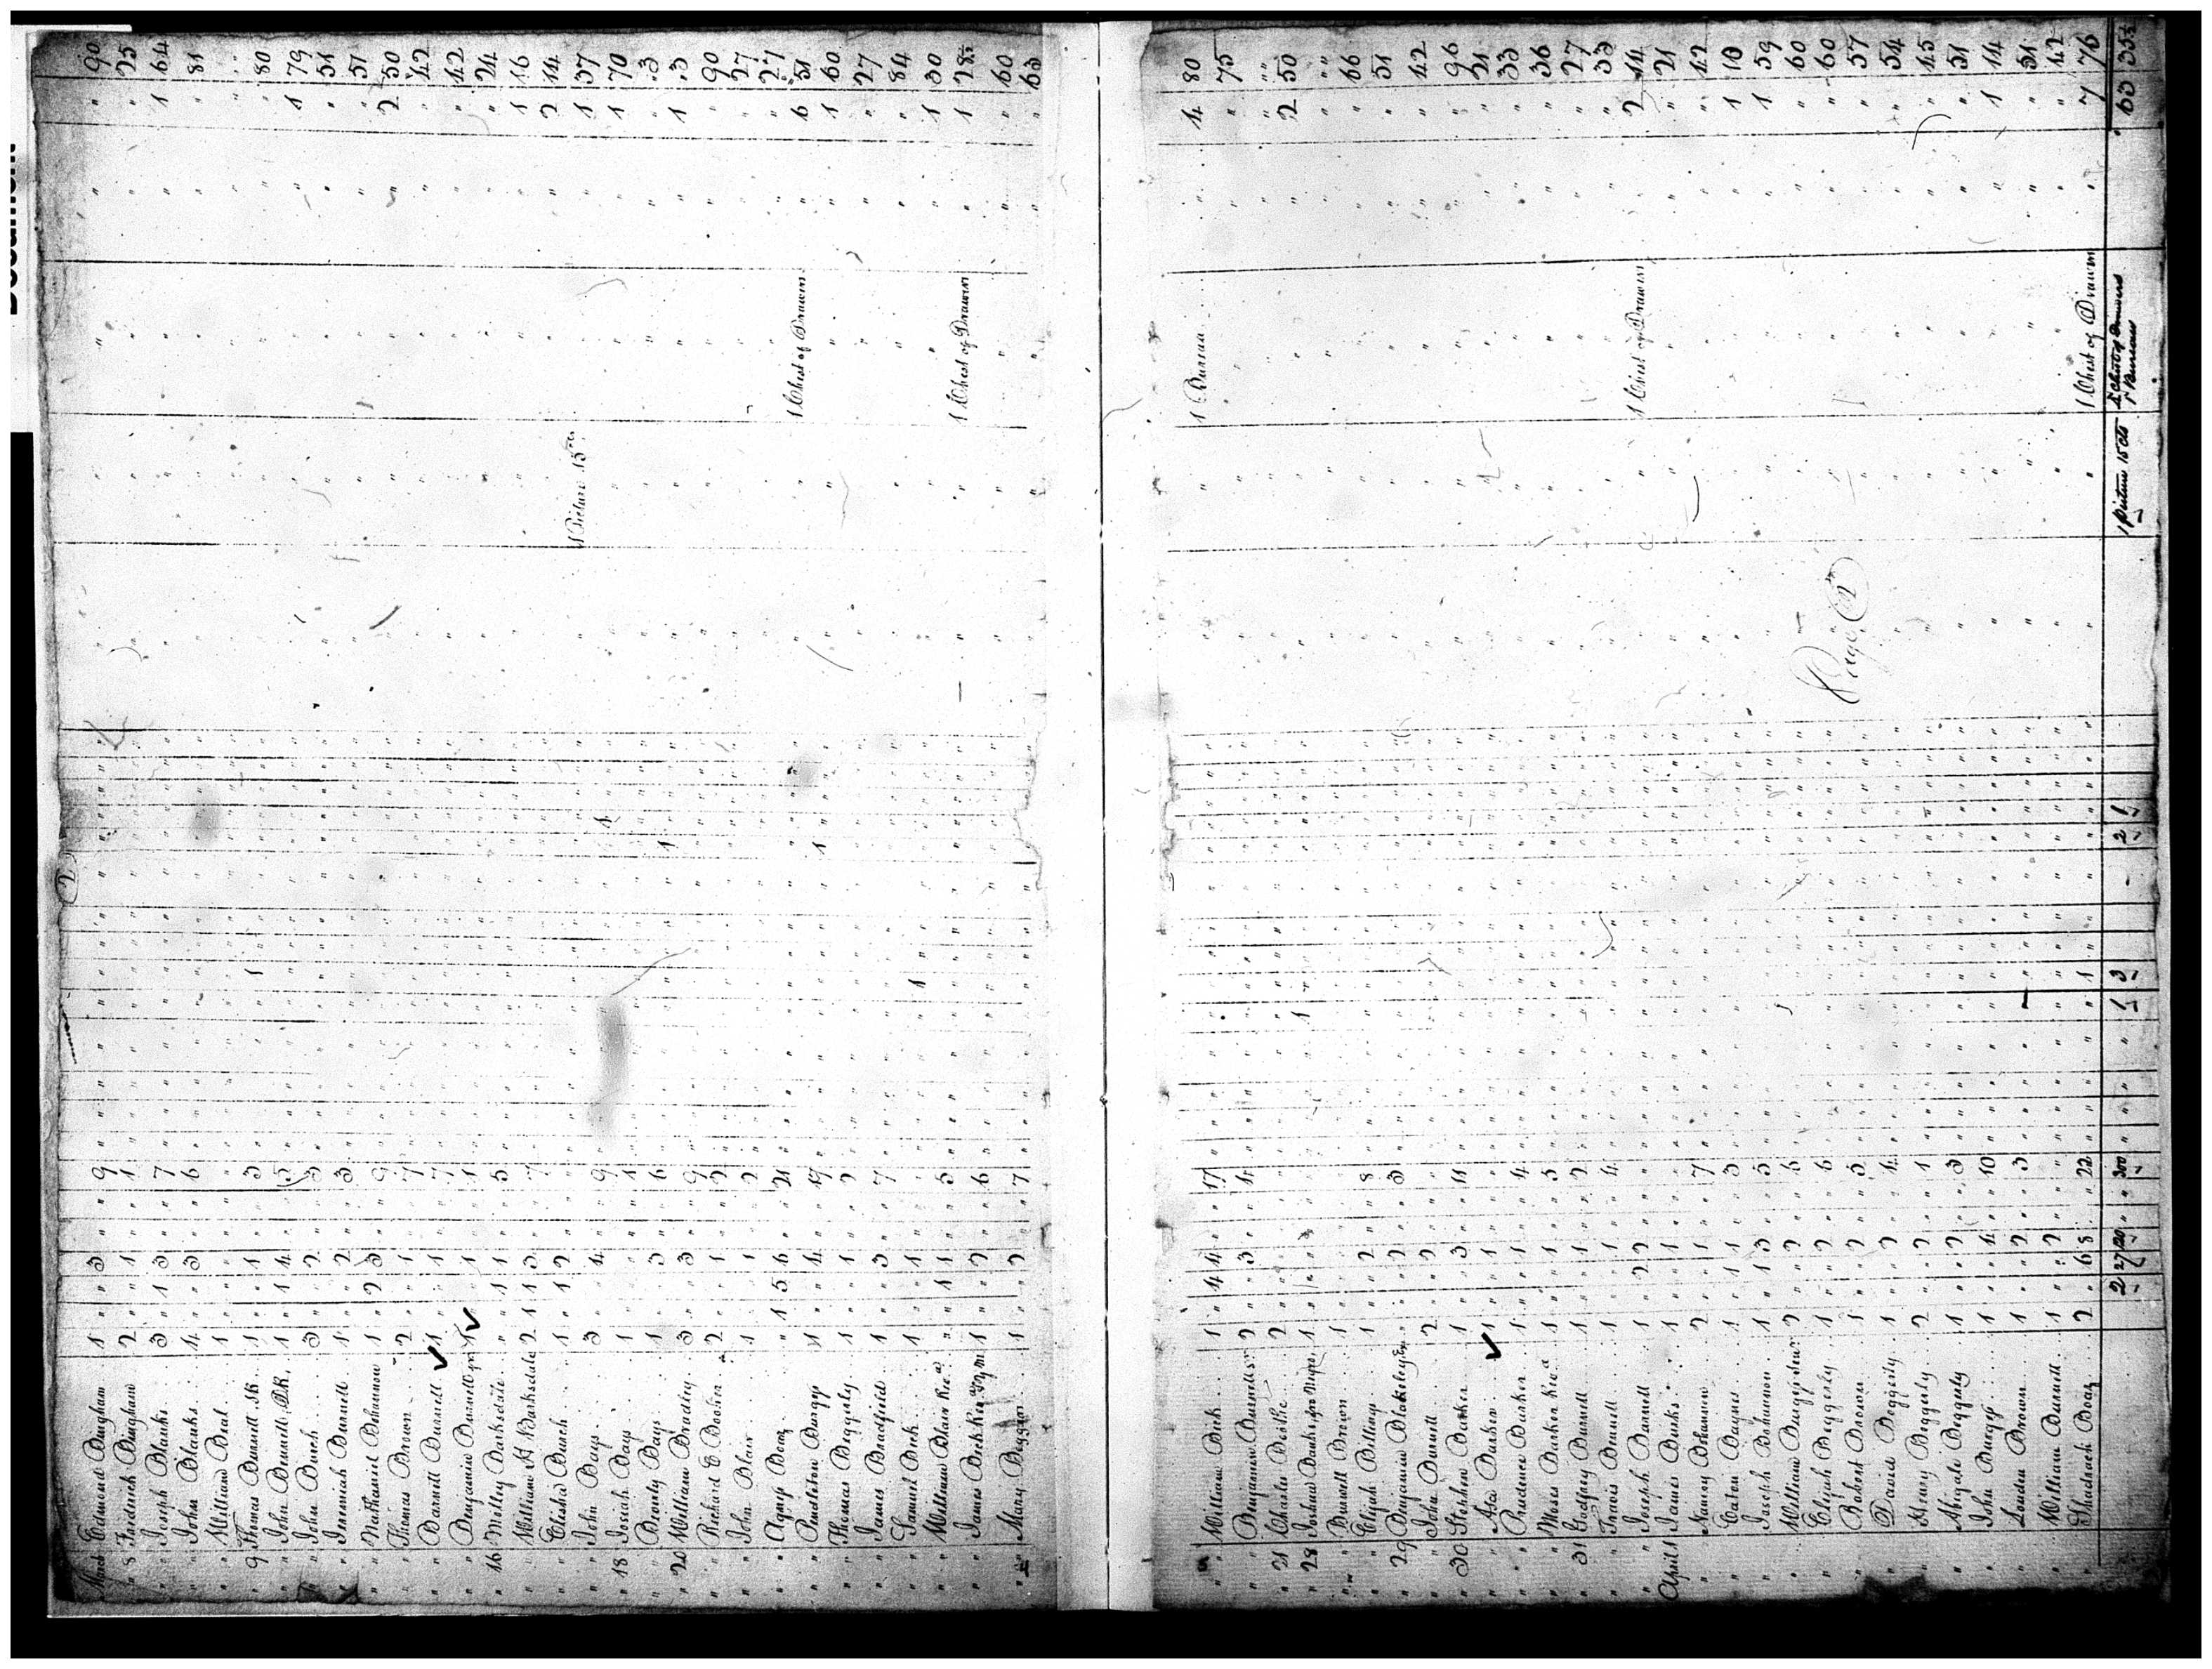 2
March Edmund Bingham 1 3 9 90
8 Fredrick Bingham 2 1 1 25
Joseph Blanks 3 1 3 7 1 64
John Blanks 4 3 6 81
William Beal 1
9 Thomas Burnill SR 1 1 3 1 80
John Bennill DR. 1 1 4 5 1 79
John Bunch 3 2 3 51
Jeremiah Burnell 1 2 3 51
Nathaniel Bohannon 1 2 3 9 2 50
Thomas Brown 2 1 7 42
Barnill Burnell 1 1 7 42
Benjamin Burnell 1 1 1 24
16 Molley Barksdale 1 1 5 1 16
William H Barksdale 2 1 1 3 7 2 14
Elisha Bunch 1 1 2 1 37
John Bays 3 4 9 1 Picture 15 cts 1 70
18 Josiah Bays 1 1 3
Brently Bays 1 3 6 1 1 3
20 William Bradley 3 3 9 90
Richard C Booker 2 1 2 27
John Blair 1 1 2 27
Agness Boaz 1 5 6 21 1 Chest of Drawers 6 51
Pendleton Burgess 1 4 19 1 1 60
Thomas Biggerly 1 1 2 27
James Bradfield 1 3 7 84
Samuel Beck 1 1 1 1 30
William Blair 1 1 5 1 Chest of Drawers 1 28½
James Beckley 1 2 6 60
Mary Biggar 1 2 7 63
William Dick 1 4 4 17 1 Bureau 4 80
Benjamin Burnell 2 3 14 75
21 Charles 2
28 Joshua Banks free Negro 1 1 2 50
Burwell Brown 1
Elijah Billings 1 2 8 66
29 Benjamin Blakeley 2 3 51
John Burnill 2 2 42
30 Stephen Barker 1 3 11 96
Asa Barker 1 1 21
Prudence Barker 1 1 4 33
Moses Barker 1 1 5 36
31 Godfrey Burnill 1 1 2 27
Travis Burnill 1 1 4 33
Joseph Burnell 1 2 2 1 Chest of Drawers 2 14
April 1 James Burks 1 1 21
Nancy Bohannon 2 1 7 42
Eaton Baynes 1 1 1 3 1 10
Joseph Bohannon 1 1 3 5 1 59
William Burgess 2 2 6 60
Elijah Beggerly 1 2 6 60
Robert Brown 1 2 5 57
David Beggerly 1 2 4 54
Henry Beggerly 2 2 1 45
Abigale Beggerly 1 2 3 51
John Burgess 1 4 10 1 14
Louden Brown 1 2 3 51
William Burnill 1 2 42
Shadrach Boaz 2 6 8 22 1 1 Chest of Drawers 7 76
Page 2
2 27 120 300 1 3 2 1 1 picture 15 cts 4 Chest of Drawers 63 35½
1 Bureau